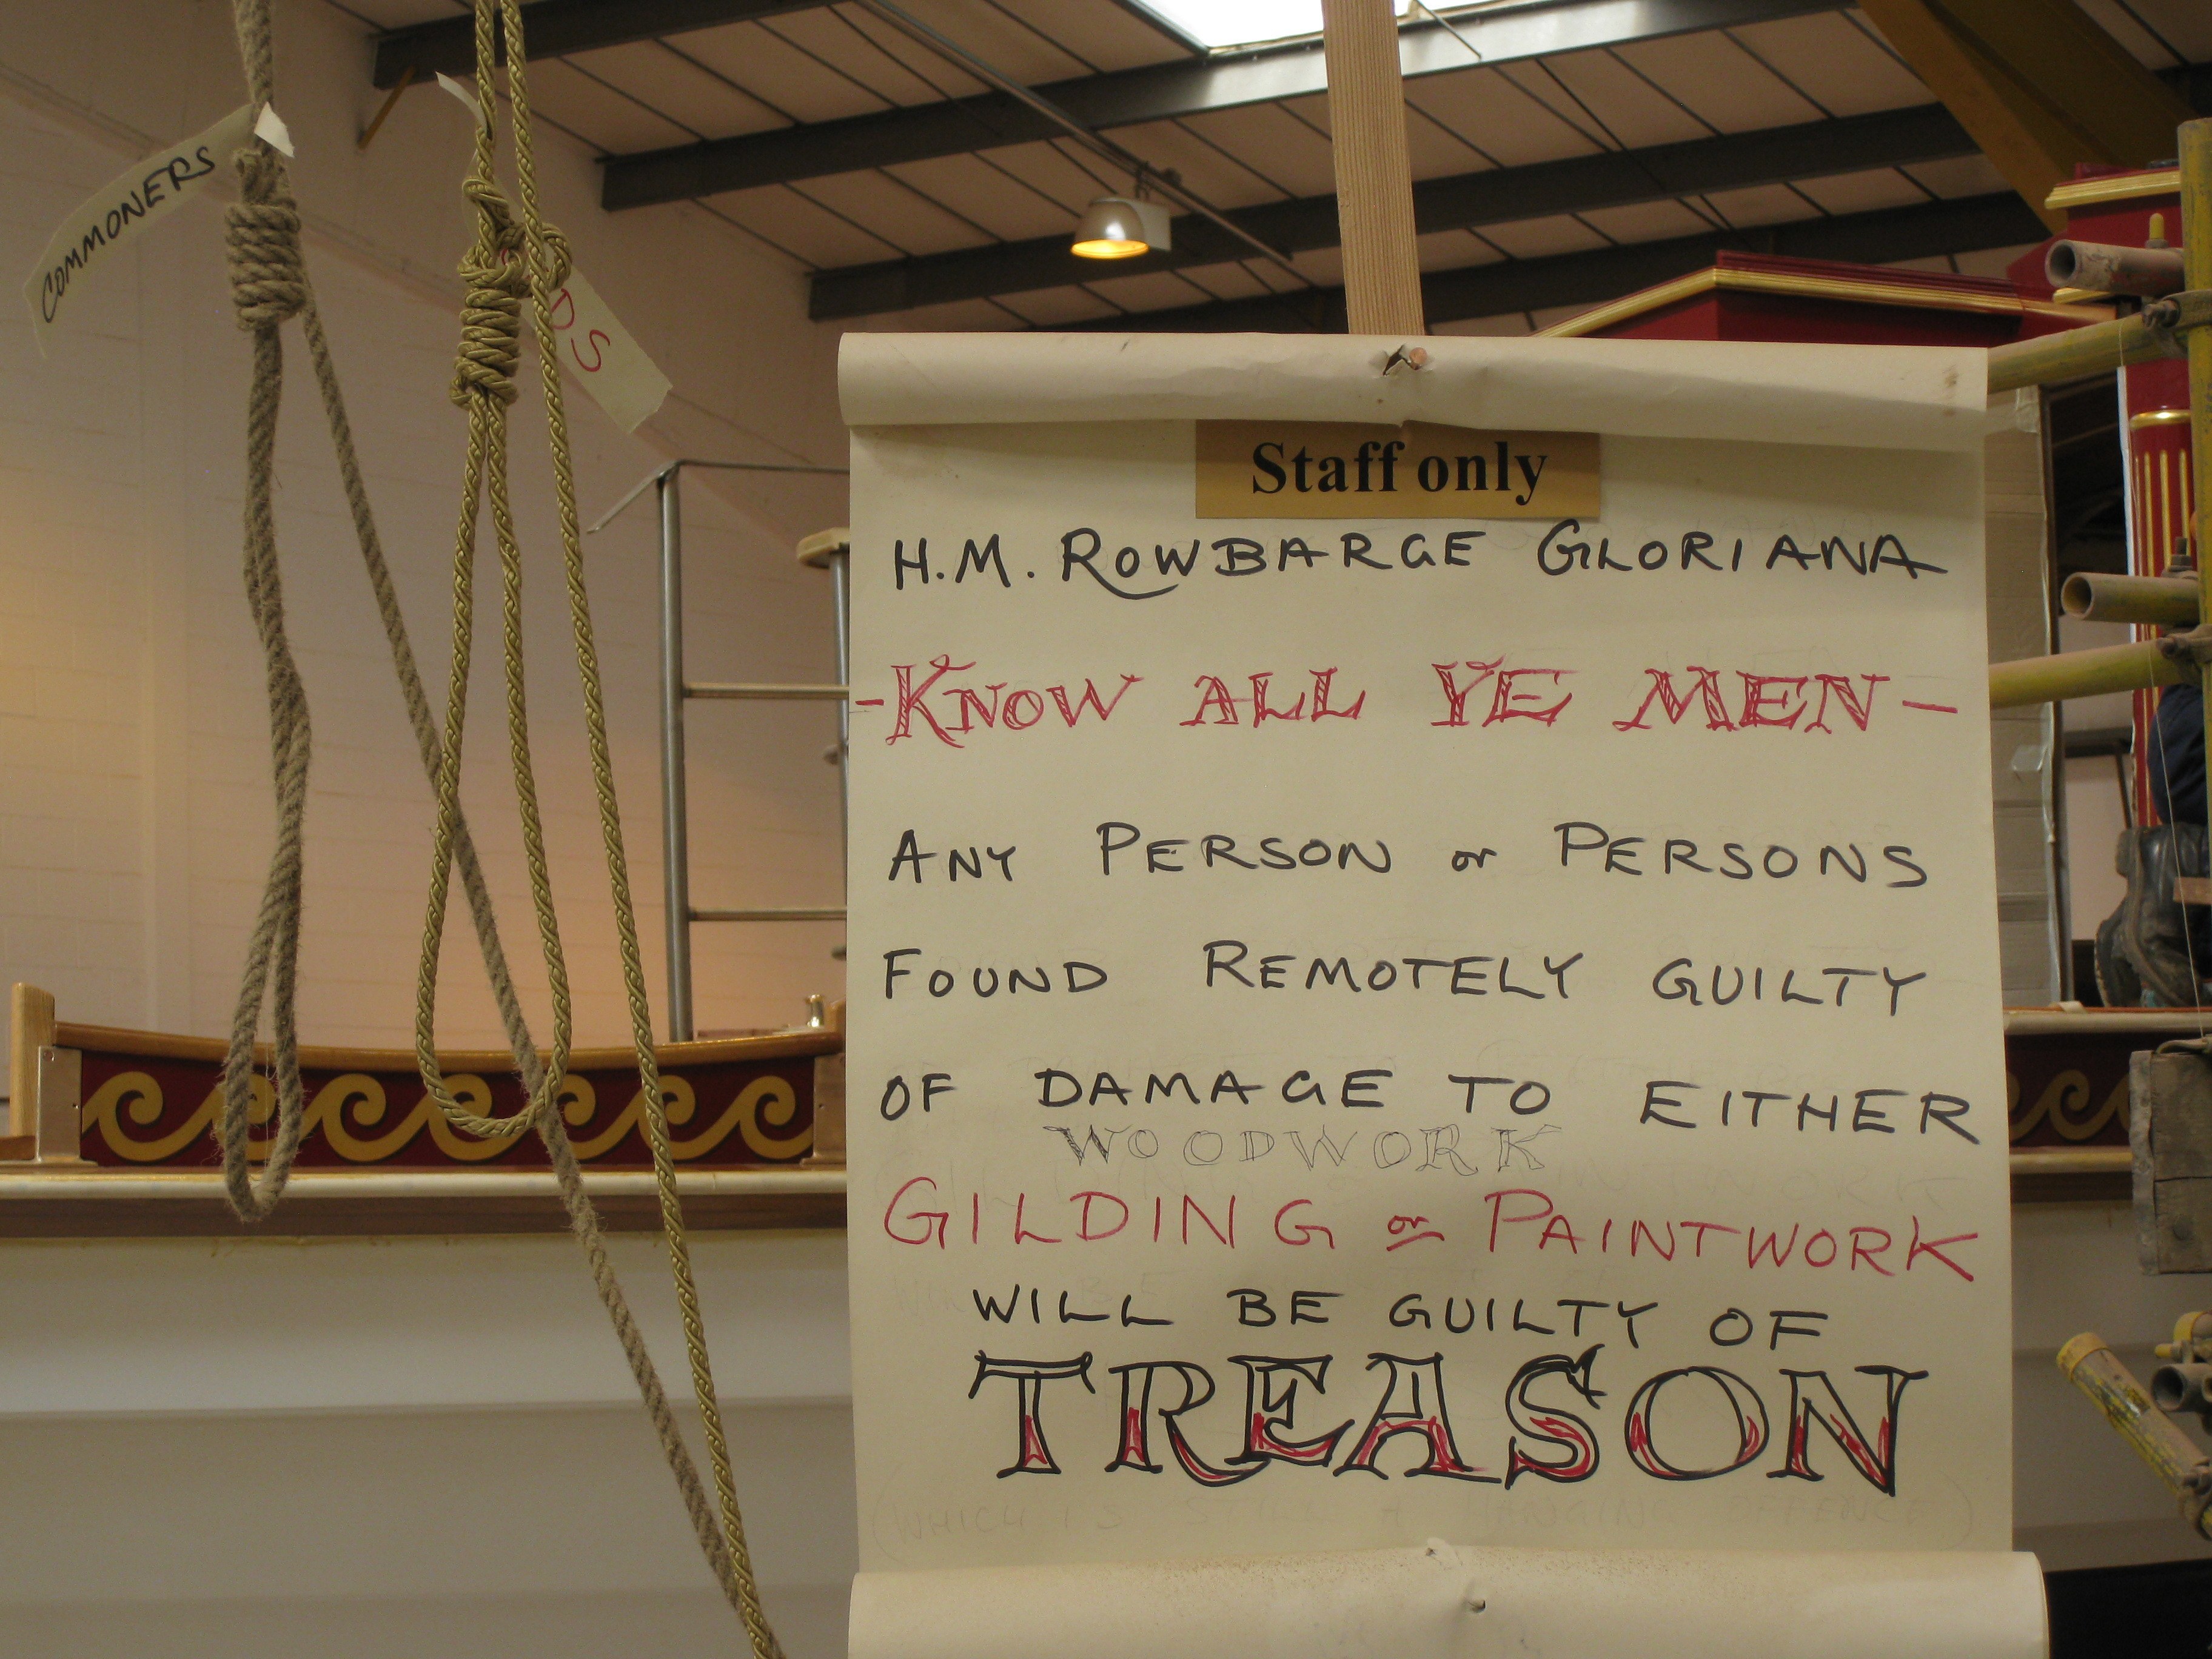 COMMONERS
DS
Staff only
H.M. ROWBARGE GLORIANA
-KNOW ALL YE MEN-
ANY PERSON or PERSONS
FOUND REMOTELY GUILTY
OF DAMAGE TO EITHER
WOODWORK
GILDING or PAINTWORK
WILL BE GUILTY OF
TREASON
(WHICH IS STILL A HANGING OFFENCE)